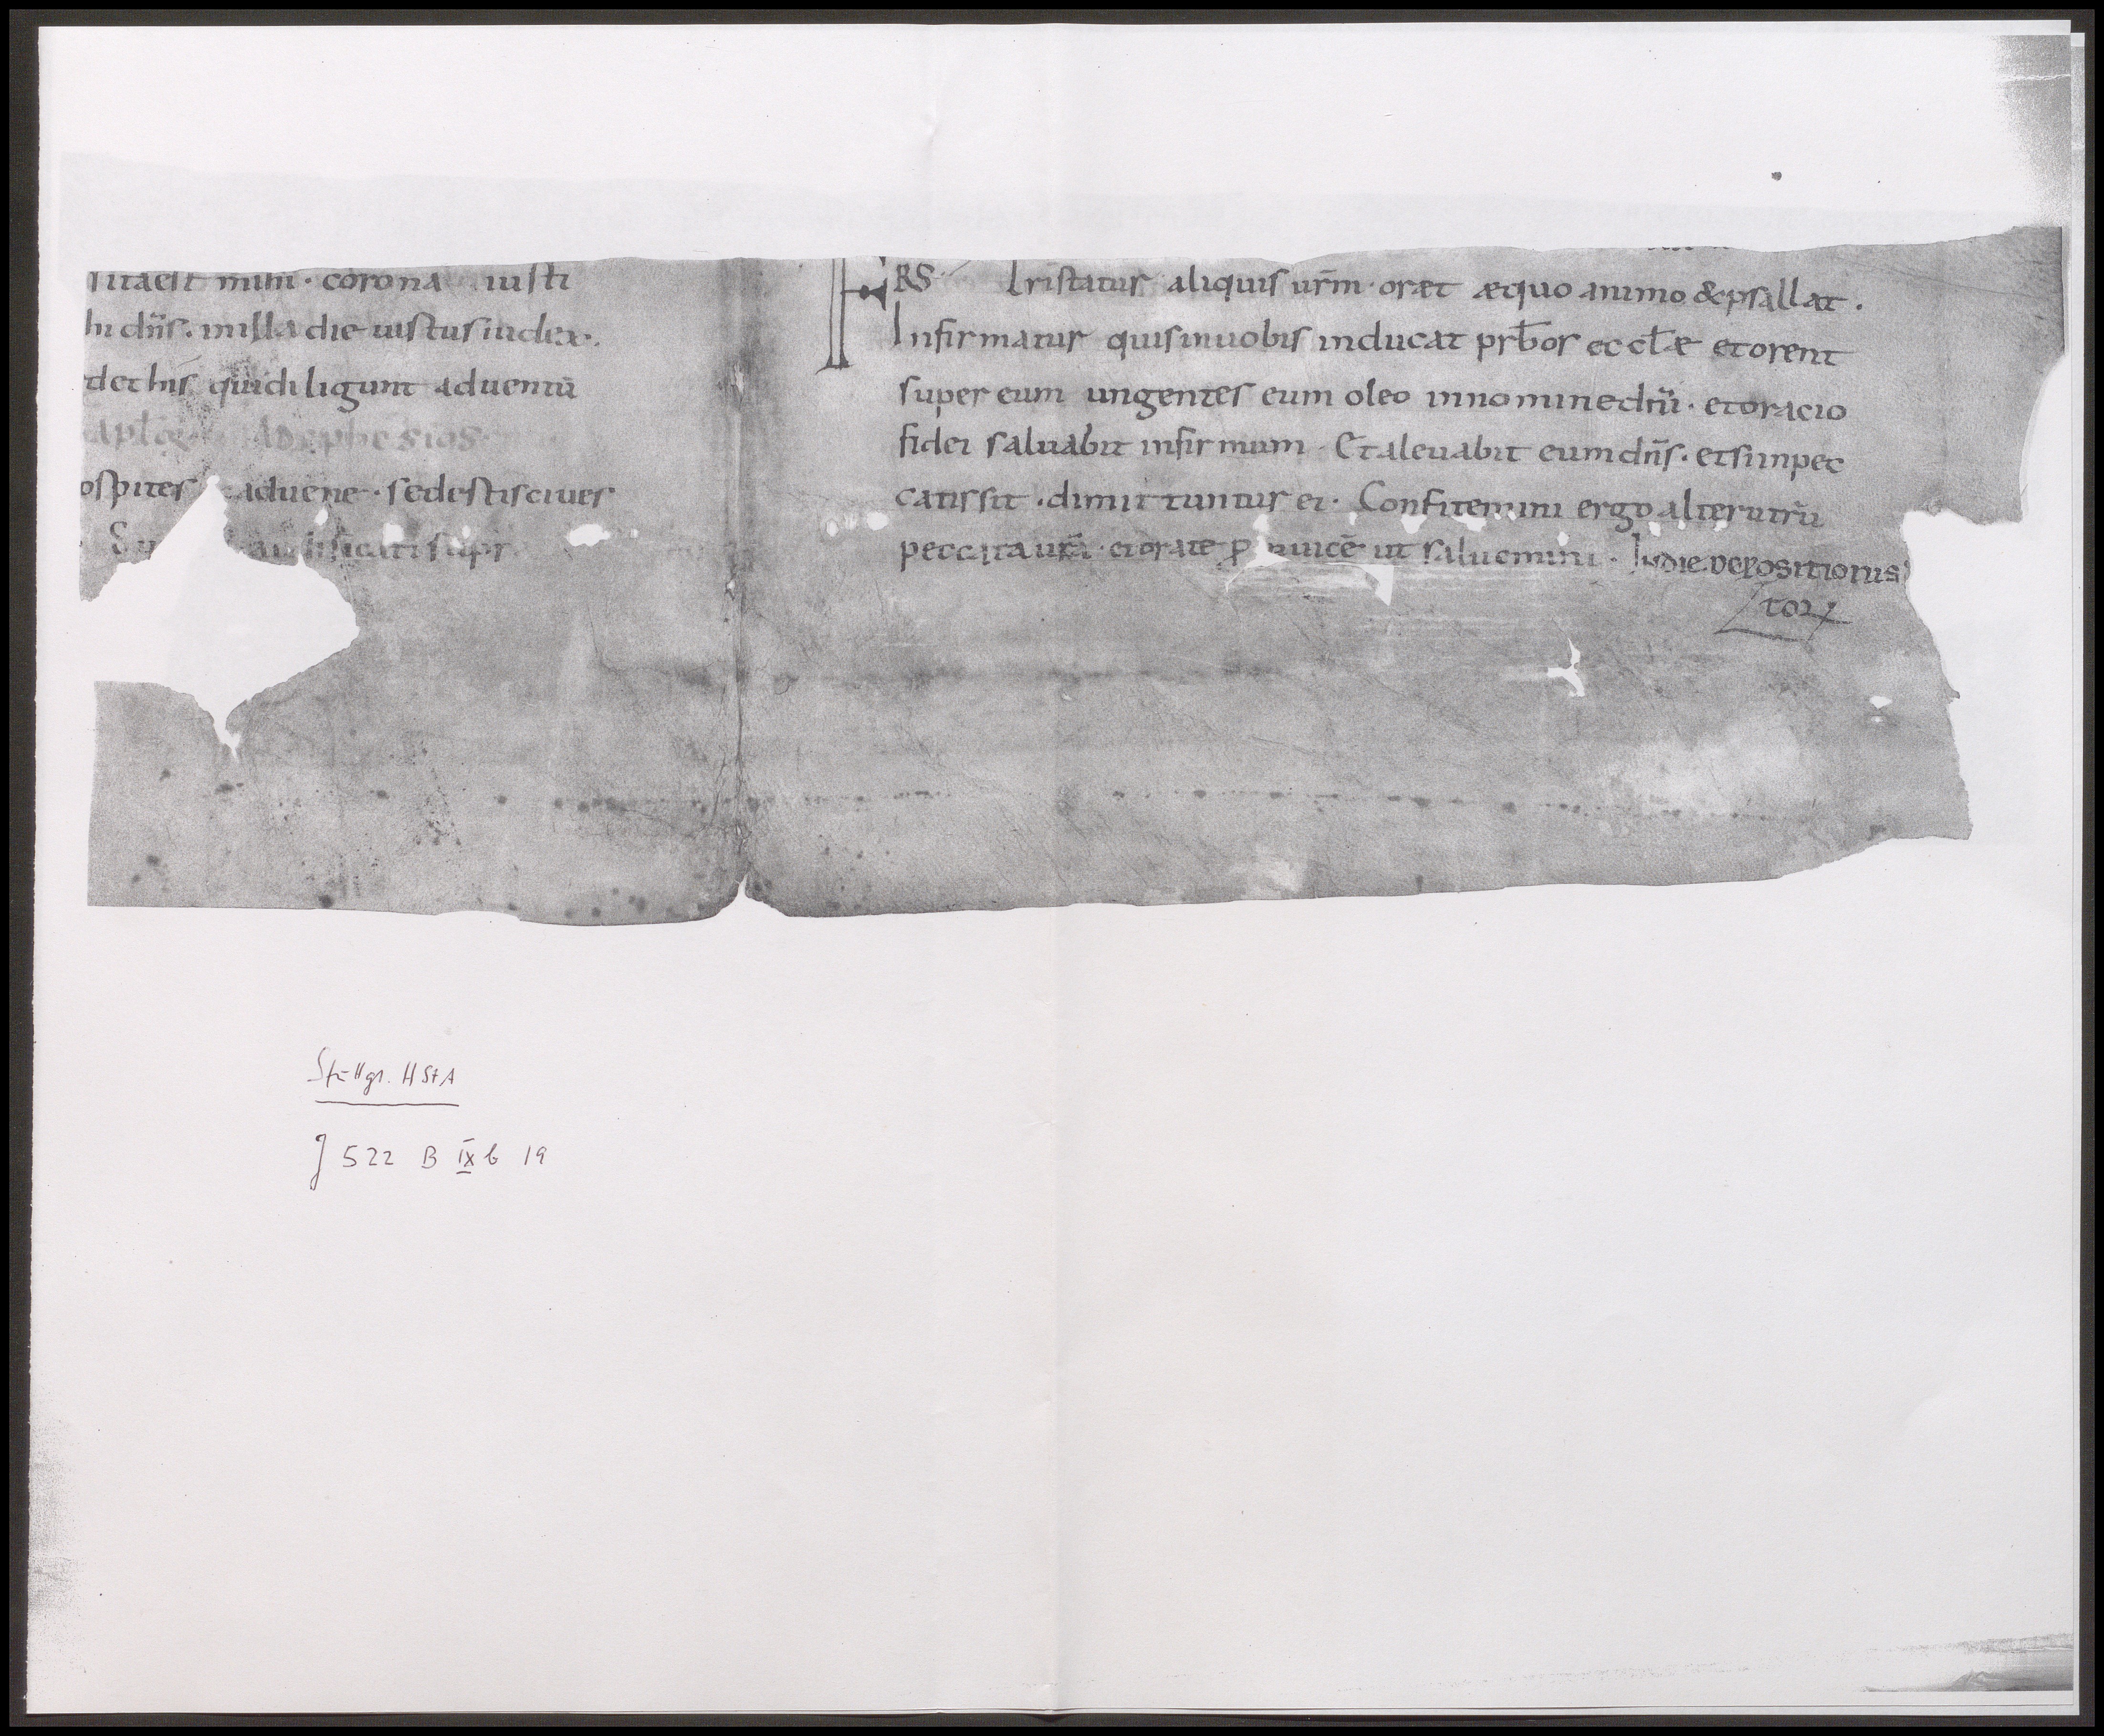 sita est mihi · corona iusti
hi dñs · in illa die iustus iudex ·
det his qui diligunt aduentū
apłi Ad ephesios
ospites & aduene · sed estis ciues
aedificati supr
FRS Tristatur aliquis urm̄ · oret æquo animo & psallat ·
Infirmatur quis in uobis inducat prb̄or eccłæ et orent
super eum ungentes eum oleo in nomine dn̄i · et oracio
fidei saluabit infirmum · Et aleuabit eum dn̄s · et si in pec
catis sit · dimittuntur ei · Confitemini ergo alterutrū
peccata ur̄a · et orate ꝓ inuicē ut saluemini · In die depositionis
torꝝ
Stuttgt. HStA
J 522 B IX b 19